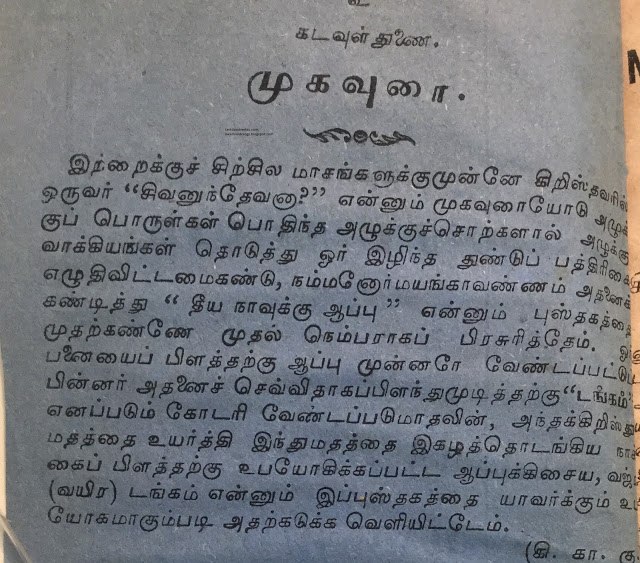 உ
கடவுள் துணை.
முகவுரை.
இற்றைக்குச் சிற்சில மாசங்களுக்குமுன்னே கிறிஸ்தவரில்
ஒருவர் “சிவனுந்தேவனா?” என்னும் முகவுரையோடு அழுக்
குப் பொருள்கள் பொதிந்த அழுக்குச்சொற்களால் அழுக்கு
வாக்கியங்கள் தொடுத்து ஓர் இழிந்த துண்டுப் பத்திரிகை
எழுதிவிட்டமைகண்டு, நம்மனோர்மயங்காவண்ணம் அதனைக்
கண்டித்து “தீய நாவுக்கு ஆப்பு” என்னும் புஸ்தகத்தை
முதற்கண்ணே முதல் நெம்பராகப் பிரசுரித்தேம்.
பனையைப் பிளத்தற்கு ஆப்பு முன்னரே வேண்டப்பட்டு
பின்னர் அதனைச் செவ்விதாகப்பிளந்துமுடித்தற்கு “டங்கம்”
எனப்படும் கோடரி வேண்டப்படுமாதலின், அந்தக்கிறிஸ்து
மதத்தை உயர்த்தி இந்துமதத்தை இகழத்தொடங்கிய நா
கைப் பிளத்தற்கு உபயோகிக்கப்பட்ட ஆப்புக்கிசைய, வஜ்
(வயிர) டங்கம் என்னும் இப்புஸ்தகத்தை யாவர்க்கும் உ
யோகமாகும்படி அதற்கடுக்க வெளியிட்டேம்.
(கி. கா. கு